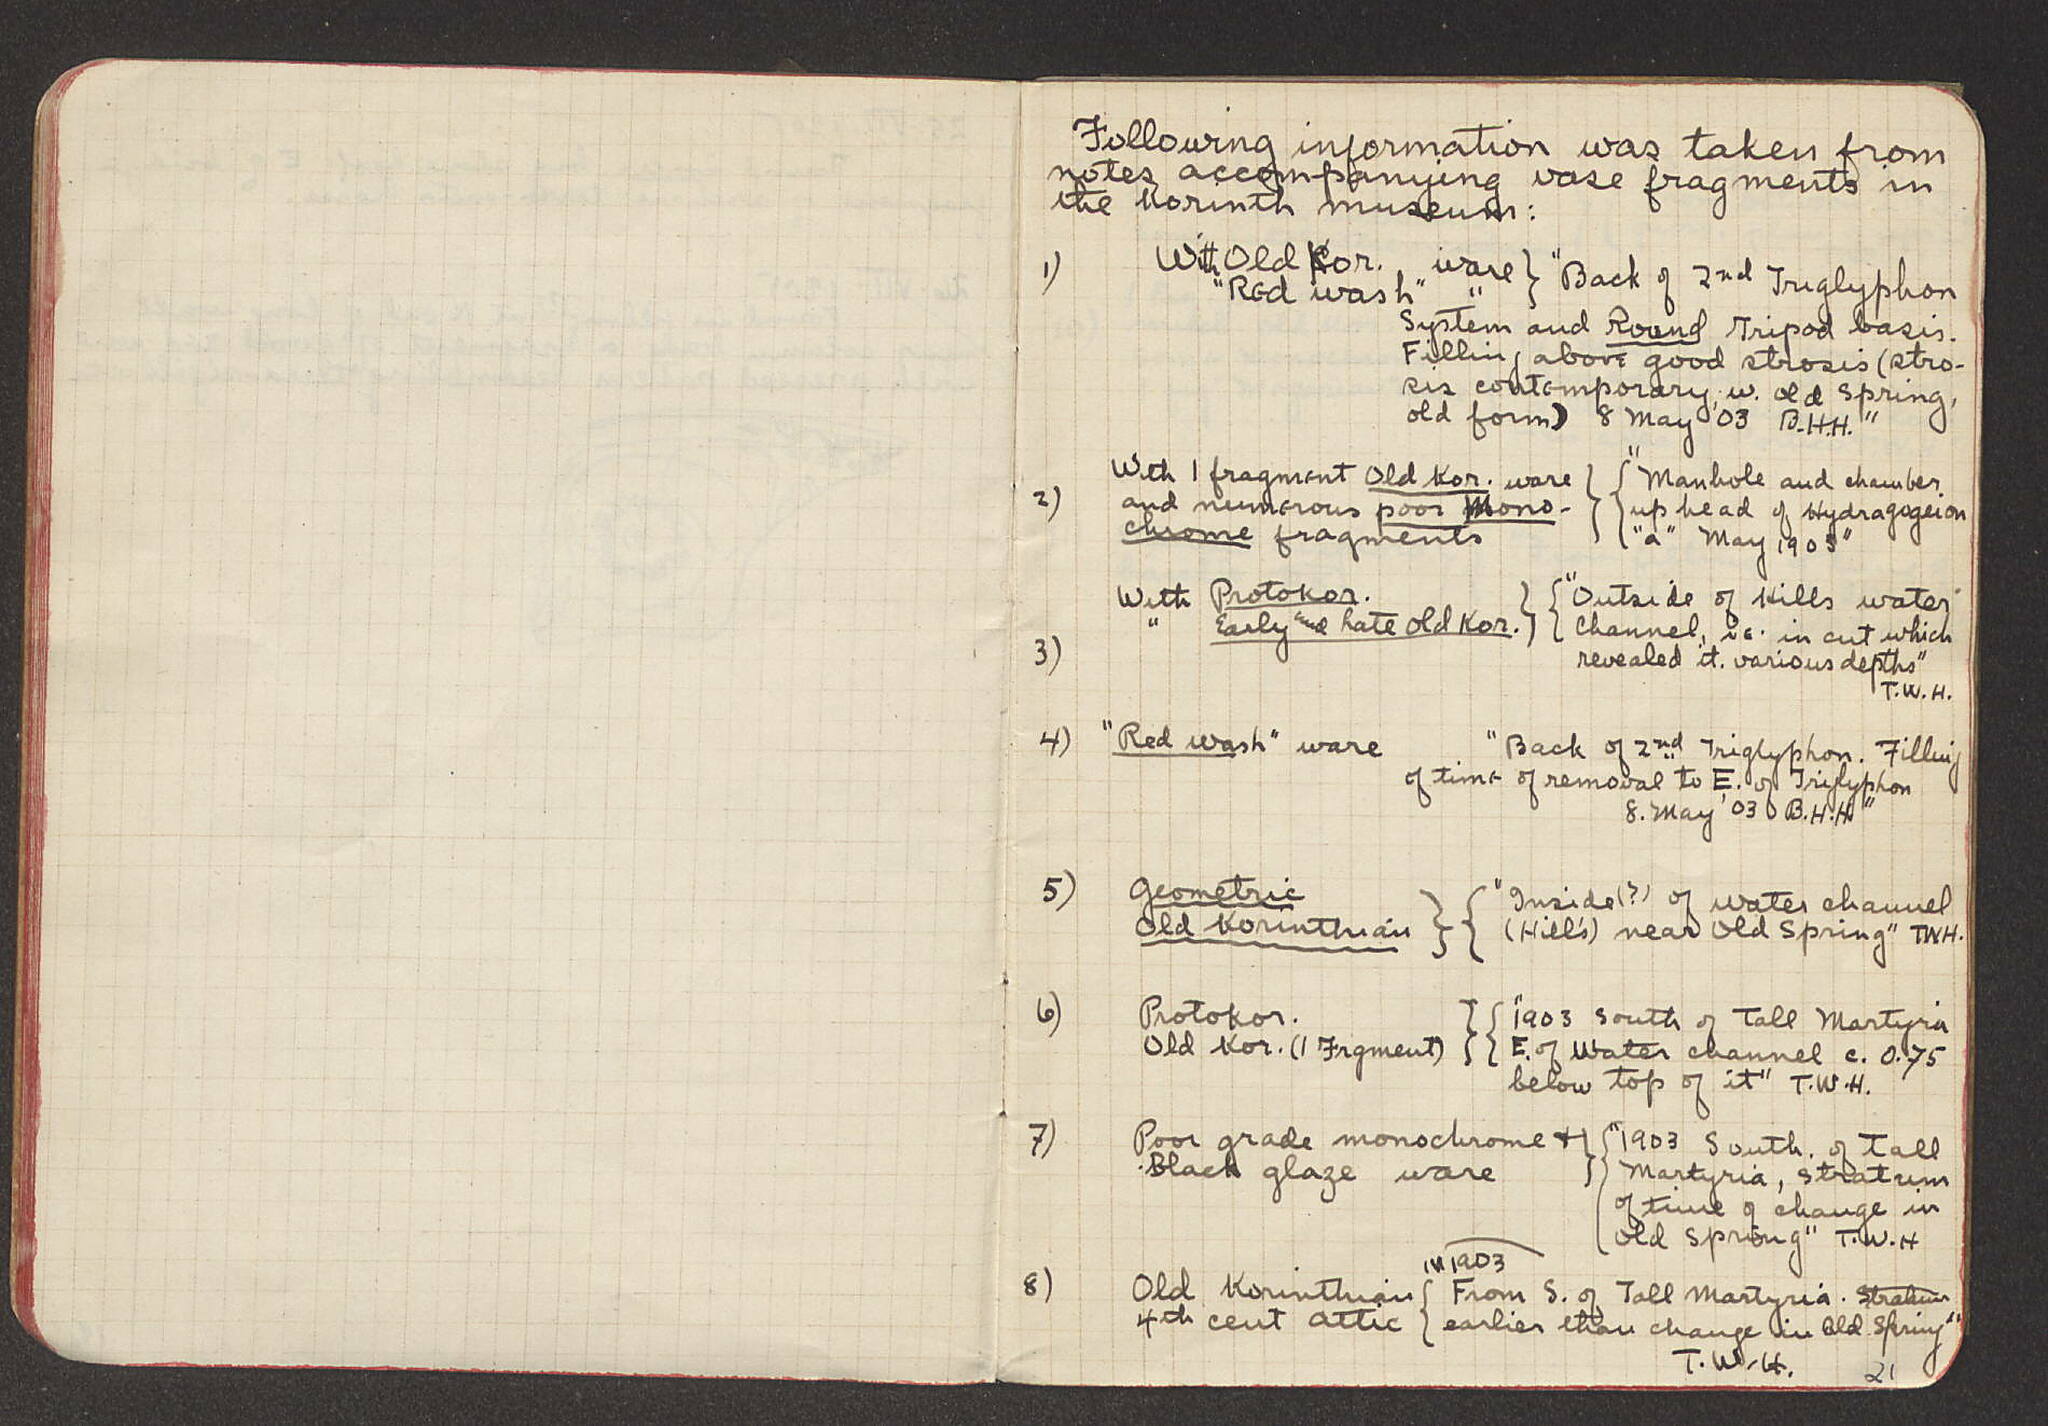 Following information was taken from
notes accompanying vase fragments in
the Korinth museum:
1) With Old Kor. ware } "Back of 2nd Triglyphon
"Red wash" "
System and Round Tripod basis.
Filling above good strosis (stro-
sis contemporary w. old Spring,
old form) 8 May '03 B.H.H."
2) With 1 fragment Old Kor. ware } { "Manhole and chamber
and numerous poor Mono- up head of Hydragogeion
chrome fragments "a" May 1903"
With Protokor. } { "Outside of Hills water
3) " Early and Late Old Kor. channel, i.e. in cut which
revealed it. various depths"
T.W.H.
4) "Red wash" ware "Back of 2nd Triglyphon. Filling
of time of removal to E. of Triglyphon
8. May '03 B.H.H."
5) Geometric } { "Inside(?) of water channel
Old Korinthian (Hill's) near Old Spring" TWH.
6) Protokor. } { "1903 South of Tall Martyria
Old Kor. (1 Frgment) E. of Water channel c. 0.75
below top of it" T.W.H.
7) Poor grade monochrome + } { "1903 South. of Tall
Black glaze ware Martyria, stratum
of time of change in
Old Spring" T.W.H
in 1903
8) Old Korinthian { From S. of Tall Martyria. Stratum
4th cent Attic earlier than change in Old Spring"
T.W.H.
21